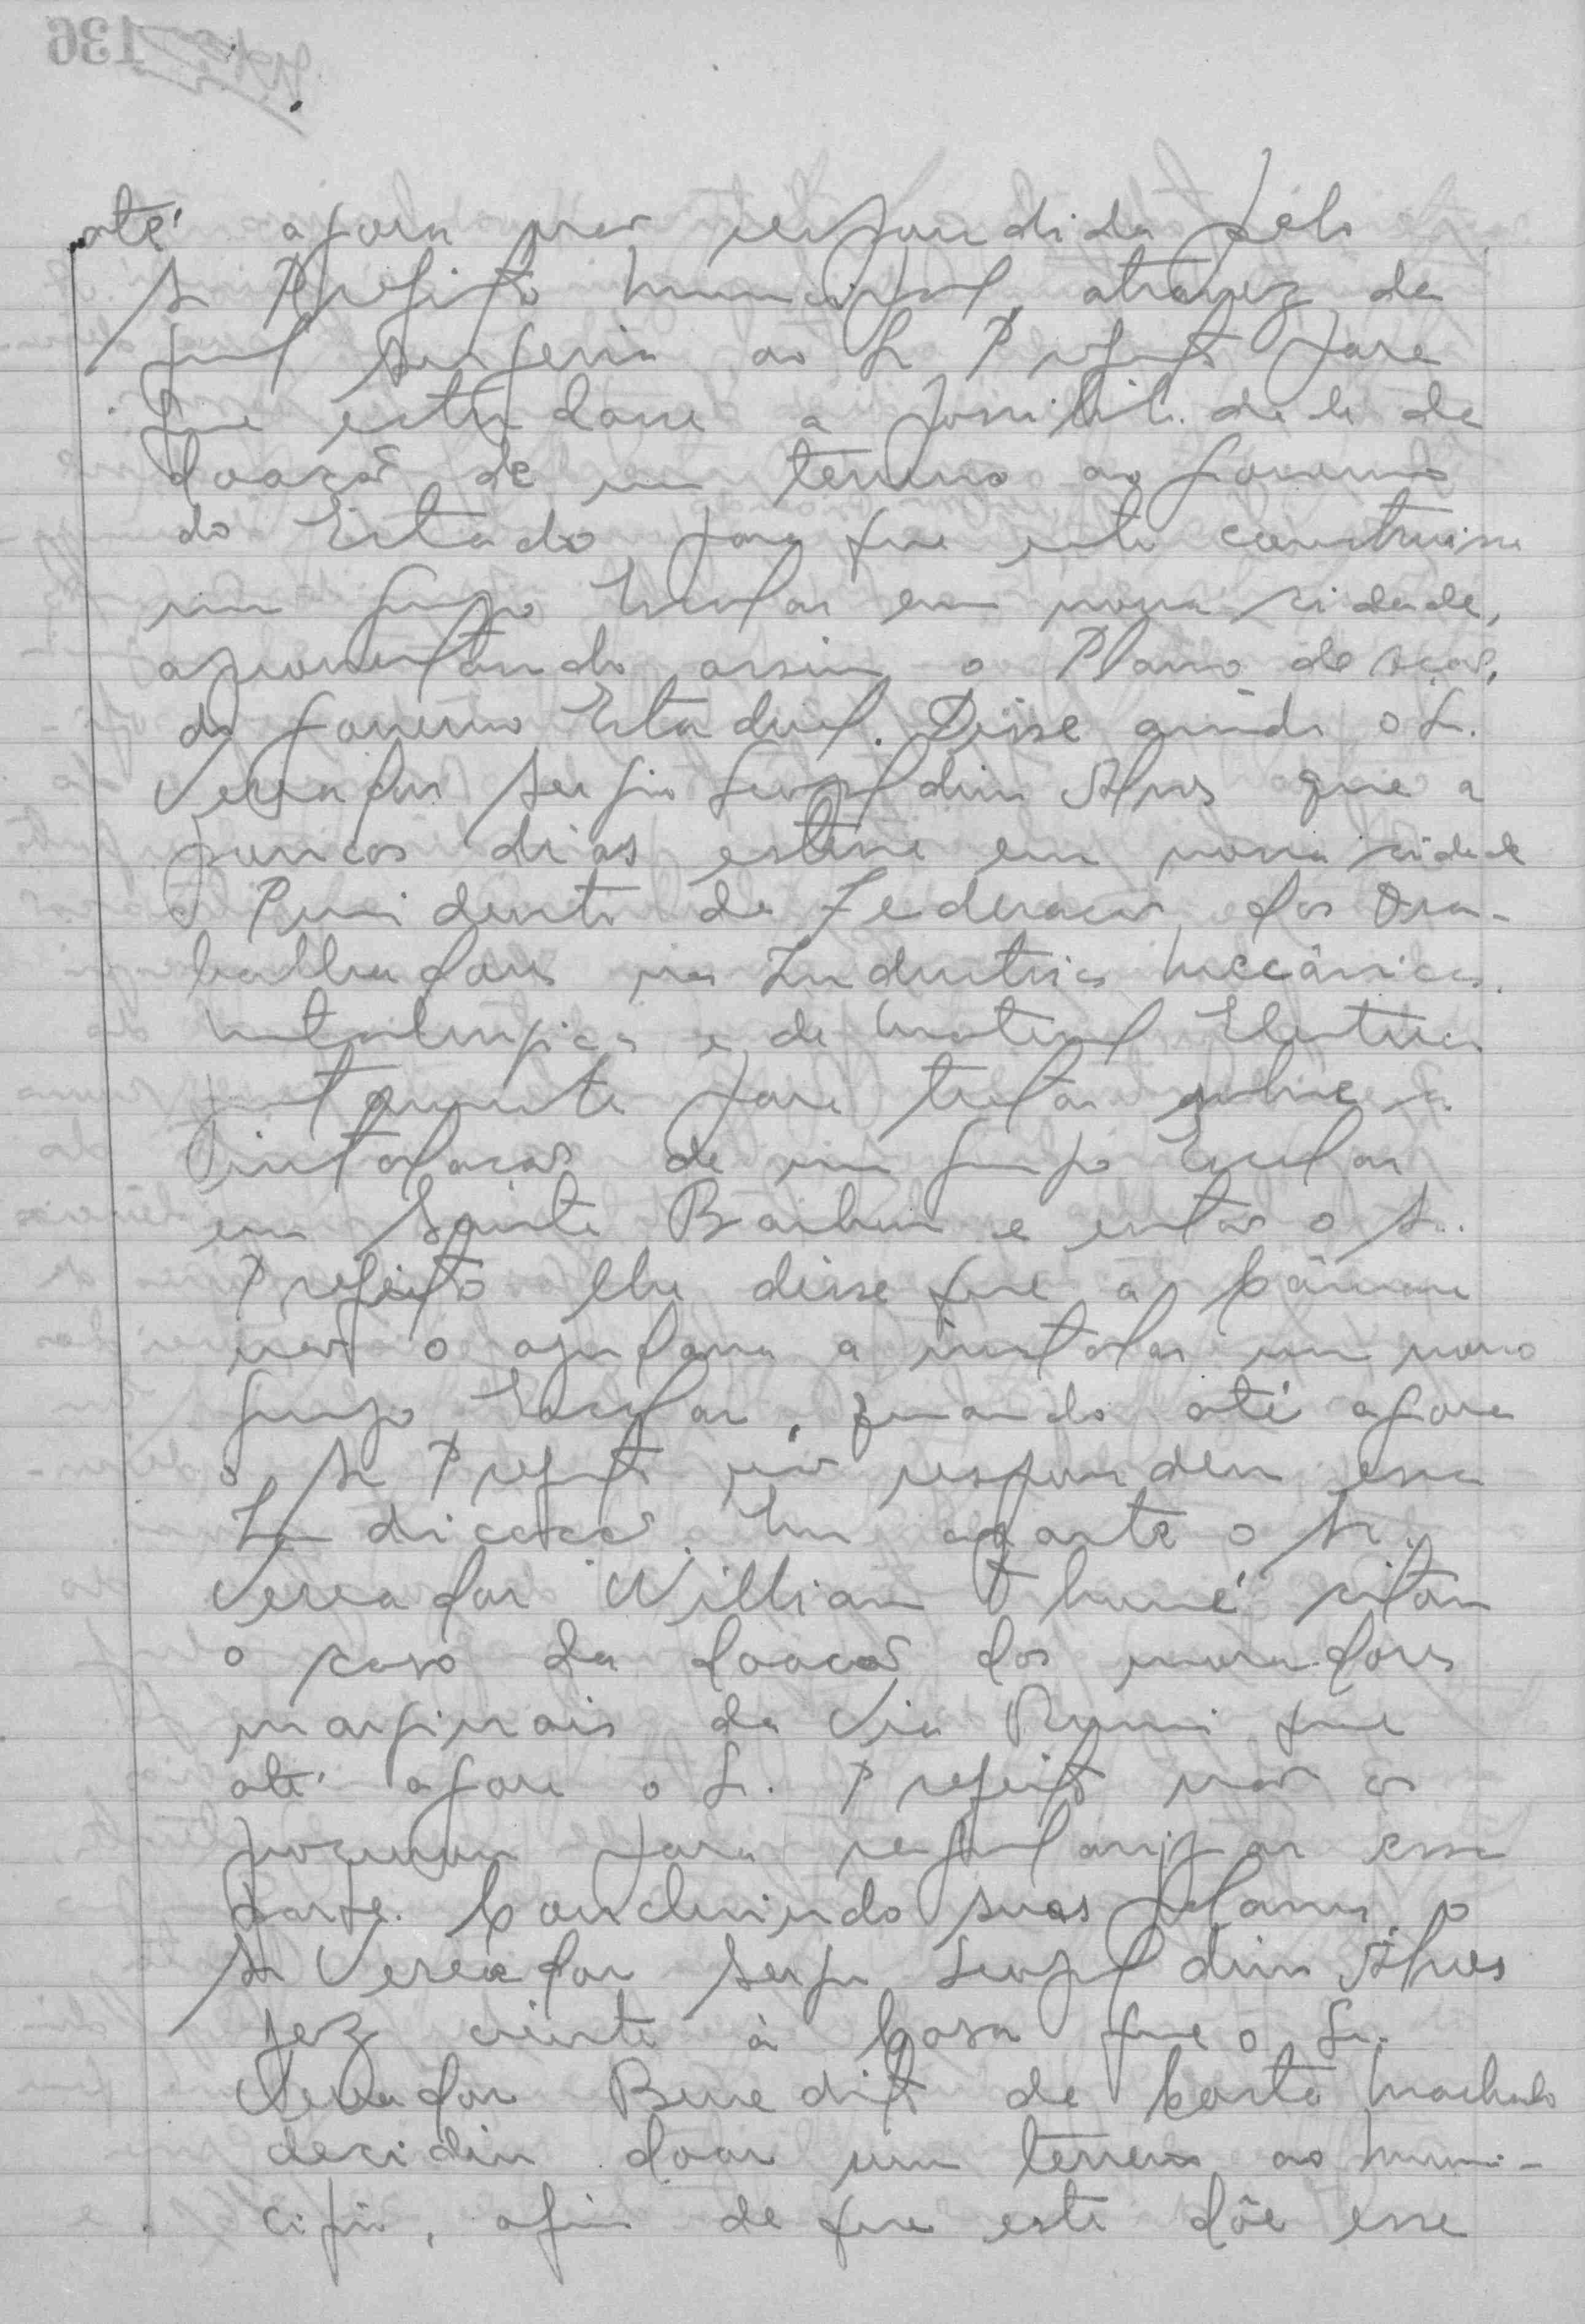 até agora não respondida pelo
Sr Prefeito Municipal, atravez da
qual sugeria ao Sr Prefeito para
que estudasse a possibilidade da
doação de um terreno ao Governo
do Estado, para que este construisse
um Grupo Escolar em nossa cidade,
aproveitando assim o Plano de ação,
do Governo Estadual. Disse ainda o Sr.
Vereador Sergio Leopoldino Alves que a
poucos dias esteve em nossa cidade
o Presidente da Federação dos Tra-
balhadores nas Industrias Meccânicas.
Metalurgicas e de Material Eletrico.
justamente para tratar sobre a
instalação de um Grupo Escolar
em Santa Barbara e então o Sr.
Prefeito lhe disse que a Câmara
não o ajudava a instalar um novo
Grupo Escolar, quando até agora
o Sr Prefeito não respondeu essa
Indicação. Em aparte o Sr.
Vereador William citou
o caso da doação dos moradores
marginais da Via Romi que
até agora o Sr. Prefeito não os
procurou para regularizar essa
parte. Concluindo suas palavras o
Sr Vereador Sergio Leopoldino Alves
fez ciente à Casa que o Sr.
Vereador Benedito da Costa Machado
decidiu doar um terreno ao Muni-
cipio, afim de que este dôe esse